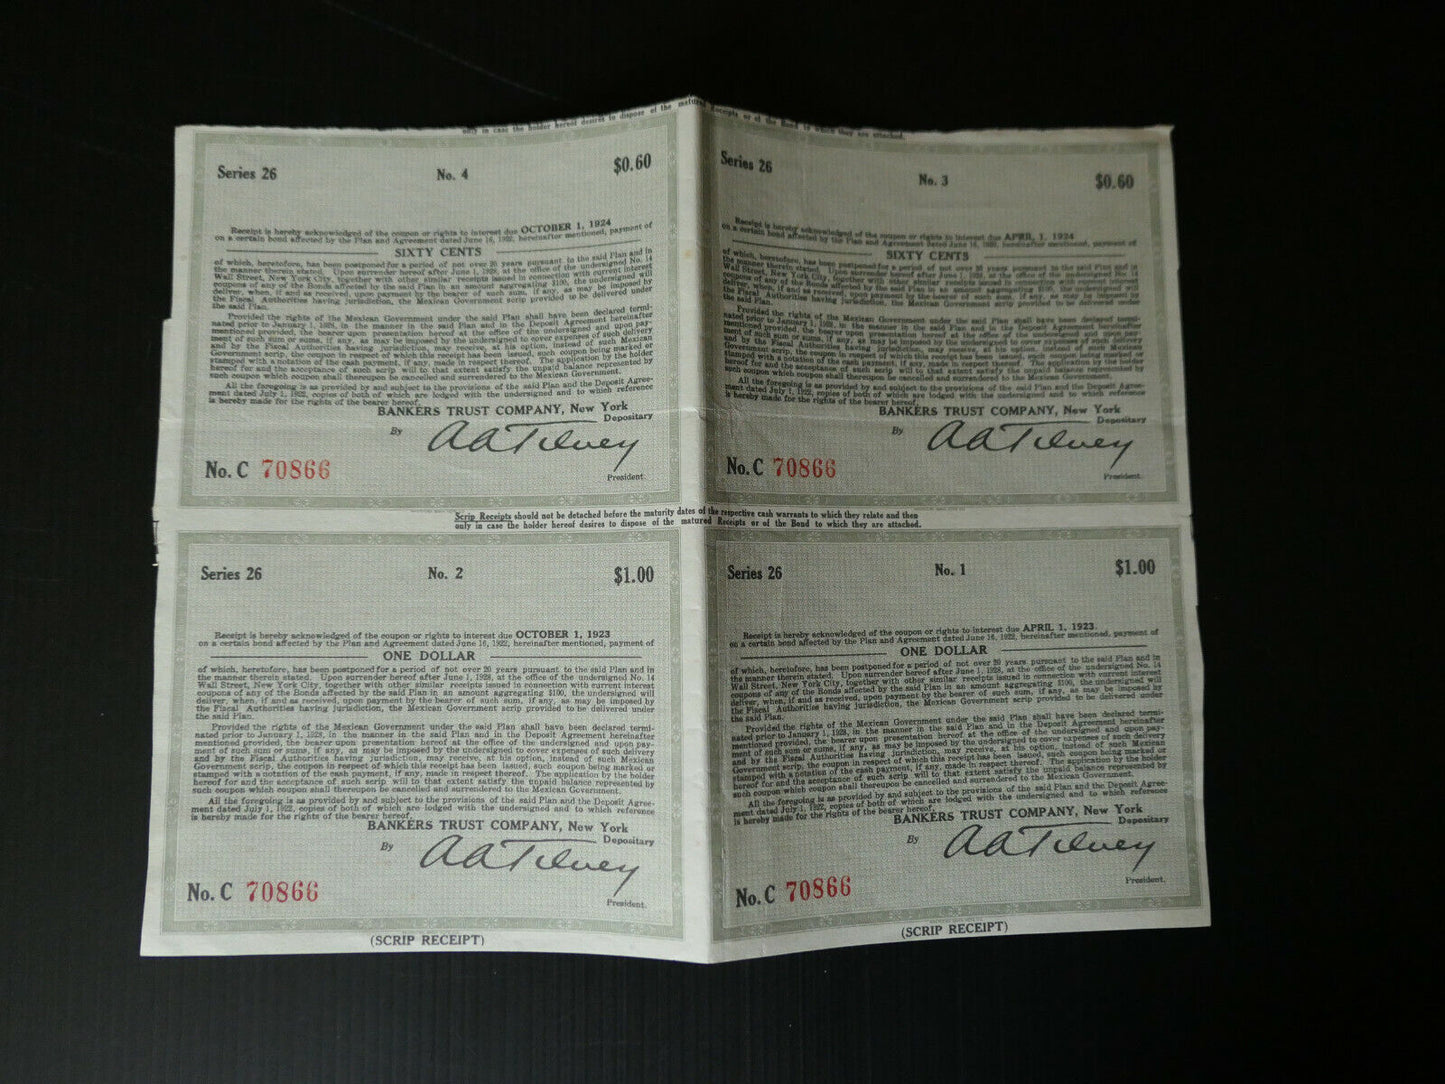 only in case the holder hereof desires to dispose of the matured Receipts or of the Bond to which they are attached.
Series 26 No. 4 $0.60
Receipt is hereby acknowledged of the coupon or rights to interest due OCTOBER 1, 1924
on a certain bond affected by the Plan and Agreement dated June 16, 1922, hereinafter mentioned, payment of
SIXTY CENTS
of which, heretofore, has been postponed for a period of not over 20 years pursuant to the said Plan and in
the manner therein stated. Upon surrender hereof after June 1, 1928, at the office of the undersigned No. 14
Wall Street, New York City, together with other similar receipts issued in connection with current interest
coupons of any of the Bonds affected by the said Plan in an amount aggregating $100, the undersigned will
deliver, when, if and as received, upon payment by the bearer of such sum, if any, as may be imposed by
the Fiscal Authorities having jurisdiction, the Mexican Government scrip provided to be delivered under
the said Plan.
Provided the rights of the Mexican Government under the said Plan shall have been declared termi-
nated prior to January 1, 1928, in the manner in the said Plan and in the Deposit Agreement hereinafter
mentioned provided, the bearer upon presentation hereof at the office of the undersigned and upon pay-
ment of such sum or sums, if any, as may be imposed by the undersigned to cover expenses of such delivery
and by the Fiscal Authorities having jurisdiction, may receive, at his option, instead of such Mexican
Government scrip, the coupon in respect of which this receipt has been issued, such coupon being marked or
stamped with a notation of the cash payment, if any, made in respect thereof. The application by the holder
hereof for and the acceptance of such scrip will to that extent satisfy the unpaid balance represented by
such coupon which coupon shall thereupon be cancelled and surrendered to the Mexican Government.
All the foregoing is as provided by and subject to the provisions of the said Plan and the Deposit Agree-
ment dated July 1, 1922, copies of both of which are lodged with the undersigned and to which reference
is hereby made for the rights of the bearer hereof.
BANKERS TRUST COMPANY, New York
Depositary
By A A Tilney
President.
No. C 70866
Series 26 No. 3 $0.60
Receipt is hereby acknowledged of the coupon or rights to interest due APRIL 1, 1924
on a certain bond affected by the Plan and Agreement dated June 16, 1922, hereinafter mentioned, payment of
SIXTY CENTS
of which, heretofore, has been postponed for a period of not over 20 years pursuant to the said Plan and in
the manner therein stated. Upon surrender hereof after June 1, 1928, at the office of the undersigned No. 14
Wall Street, New York City, together with other similar receipts issued in connection with current interest
coupons of any of the Bonds affected by the said Plan in an amount aggregating $100, the undersigned will
deliver, when, if and as received, upon payment by the bearer of such sum, if any, as may be imposed by
the Fiscal Authorities having jurisdiction, the Mexican Government scrip provided to be delivered under
the said Plan.
Provided the rights of the Mexican Government under the said Plan shall have been declared termi-
nated prior to January 1, 1928, in the manner in the said Plan and in the Deposit Agreement hereinafter
mentioned provided, the bearer upon presentation hereof at the office of the undersigned and upon pay-
ment of such sum or sums, if any, as may be imposed by the undersigned to cover expenses of such delivery
and by the Fiscal Authorities having jurisdiction, may receive, at his option, instead of such Mexican
Government scrip, the coupon in respect of which this receipt has been issued, such coupon being marked or
stamped with a notation of the cash payment, if any, made in respect thereof. The application by the holder
hereof for and the acceptance of such scrip will to that extent satisfy the unpaid balance represented by
such coupon which coupon shall thereupon be cancelled and surrendered to the Mexican Government.
All the foregoing is as provided by and subject to the provisions of the said Plan and the Deposit Agree-
ment dated July 1, 1922, copies of both of which are lodged with the undersigned and to which reference
is hereby made for the rights of the bearer hereof.
BANKERS TRUST COMPANY, New York
Depositary
By A A Tilney
President.
No. C 70866
Scrip Receipts should not be detached before the maturity dates of the respective cash warrants to which they relate and then
only in case the holder hereof desires to dispose of the matured Receipts or of the Bond to which they are attached.
Series 26 No. 2 $1.00
Receipt is hereby acknowledged of the coupon or rights to interest due OCTOBER 1, 1923
on a certain bond affected by the Plan and Agreement dated June 16, 1922, hereinafter mentioned, payment of
ONE DOLLAR
of which, heretofore, has been postponed for a period of not over 20 years pursuant to the said Plan and in
the manner therein stated. Upon surrender hereof after June 1, 1928, at the office of the undersigned No. 14
Wall Street, New York City, together with other similar receipts issued in connection with current interest
coupons of any of the Bonds affected by the said Plan in an amount aggregating $100, the undersigned will
deliver, when, if and as received, upon payment by the bearer of such sum, if any, as may be imposed by
the Fiscal Authorities having jurisdiction, the Mexican Government scrip provided to be delivered under
the said Plan.
Provided the rights of the Mexican Government under the said Plan shall have been declared termi-
nated prior to January 1, 1928, in the manner in the said Plan and in the Deposit Agreement hereinafter
mentioned provided, the bearer upon presentation hereof at the office of the undersigned and upon pay-
ment of such sum or sums, if any, as may be imposed by the undersigned to cover expenses of such delivery
and by the Fiscal Authorities having jurisdiction, may receive, at his option, instead of such Mexican
Government scrip, the coupon in respect of which this receipt has been issued, such coupon being marked or
stamped with a notation of the cash payment, if any, made in respect thereof. The application by the holder
hereof for and the acceptance of such scrip will to that extent satisfy the unpaid balance represented by
such coupon which coupon shall thereupon be cancelled and surrendered to the Mexican Government.
All the foregoing is as provided by and subject to the provisions of the said Plan and the Deposit Agree-
ment dated July 1, 1922, copies of both of which are lodged with the undersigned and to which reference
is hereby made for the rights of the bearer hereof.
BANKERS TRUST COMPANY, New York
Depositary
By A A Tilney
President.
No. C 70866
(SCRIP RECEIPT)
Series 26 No. 1 $1.00
Receipt is hereby acknowledged of the coupon or rights to interest due APRIL 1, 1923.
on a certain bond affected by the Plan and Agreement dated June 16, 1922, hereinafter mentioned, payment of
ONE DOLLAR
of which, heretofore, has been postponed for a period of not over 20 years pursuant to the said Plan and in
the manner therein stated. Upon surrender hereof after June 1, 1928, at the office of the undersigned No. 14
Wall Street, New York City, together with other similar receipts issued in connection with current interest
coupons of any of the Bonds affected by the said Plan in an amount aggregating $100, the undersigned will
deliver, when, if and as received, upon payment by the bearer of such sum, if any, as may be imposed by
the Fiscal Authorities having jurisdiction, the Mexican Government scrip provided to be delivered under
the said Plan.
Provided the rights of the Mexican Government under the said Plan shall have been declared termi-
nated prior to January 1, 1928, in the manner in the said Plan and in the Deposit Agreement hereinafter
mentioned provided, the bearer upon presentation hereof at the office of the undersigned and upon pay-
ment of such sum or sums, if any, as may be imposed by the undersigned to cover expenses of such delivery
and by the Fiscal Authorities having jurisdiction, may receive, at his option, instead of such Mexican
Government scrip, the coupon in respect of which this receipt has been issued, such coupon being marked or
stamped with a notation of the cash payment, if any, made in respect thereof. The application by the holder
hereof for and the acceptance of such scrip will to that extent satisfy the unpaid balance represented by
such coupon which coupon shall thereupon be cancelled and surrendered to the Mexican Government.
All the foregoing is as provided by and subject to the provisions of the said Plan and the Deposit Agree-
ment dated July 1, 1922, copies of both of which are lodged with the undersigned and to which reference
is hereby made for the rights of the bearer hereof.
BANKERS TRUST COMPANY, New York
Depositary
By A A Tilney
President.
No. C 70866
(SCRIP RECEIPT)